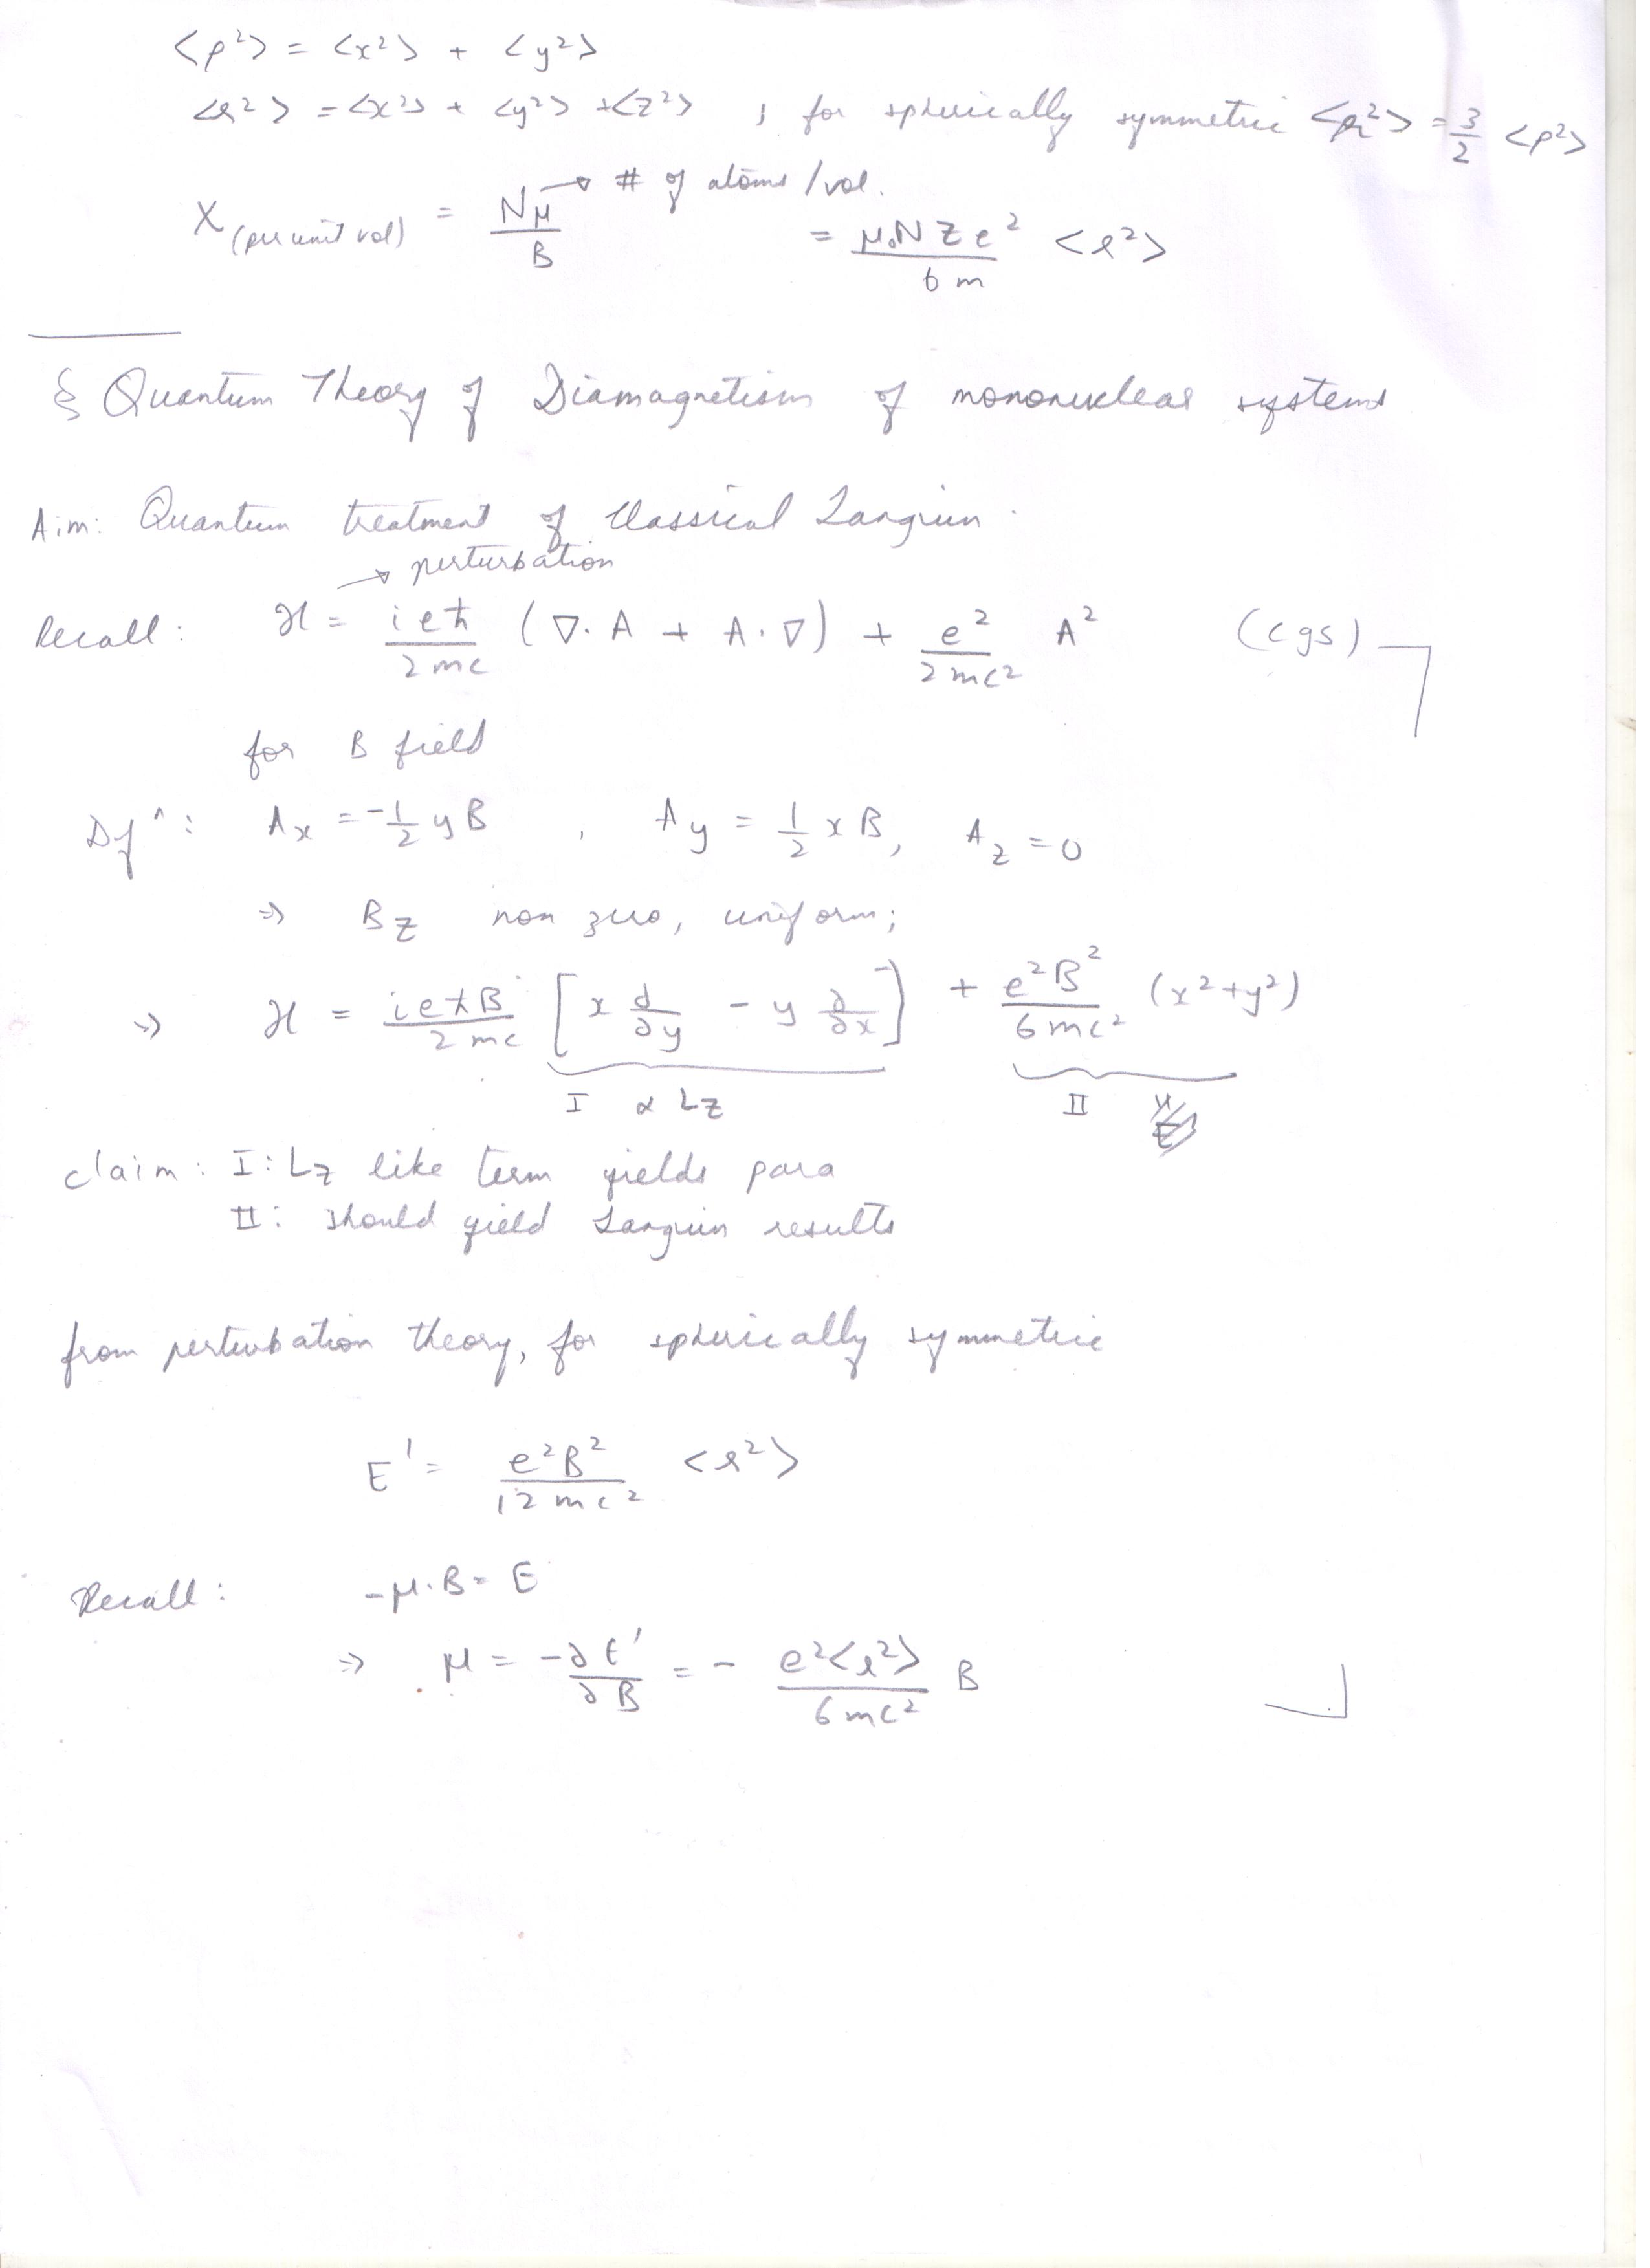 <ρ²> = <x²> + <y²>
<r²> = <x²> + <y²> + <z²> ; for spherically symmetric <r²> = 3/2 <ρ²>
χ (per unit vol) = Nμ/B → # of atoms/vol. = μ₀NZe²/6m <r²>
§ Quantum Theory of Diamagnetism of mononuclear systems
Aim: Quantum treatment of Classical Langiun.
→ perturbation
Recall: ℋ = ieħ/2mc (∇·A + A·∇) + e²/2mc² A² (cgs)
for B field
Dfⁿ: Ax = -1/2 yB , Ay = 1/2 xB, Az = 0
⇒ Bz non zero, uniform;
⇒ ℋ = ieħB/2mc [x ∂/∂y - y ∂/∂x] + e²B²/6mc² (x²+y²)
I α Lz II
claim: I: Lz like term yields para
II: should yield Languin results
from perturbation theory, for spherically symmetric
E' = e²B²/12mc² <r²>
Recall: -μ·B = E
⇒ μ = -∂E'/∂B = - e²<r²>/6mc² B